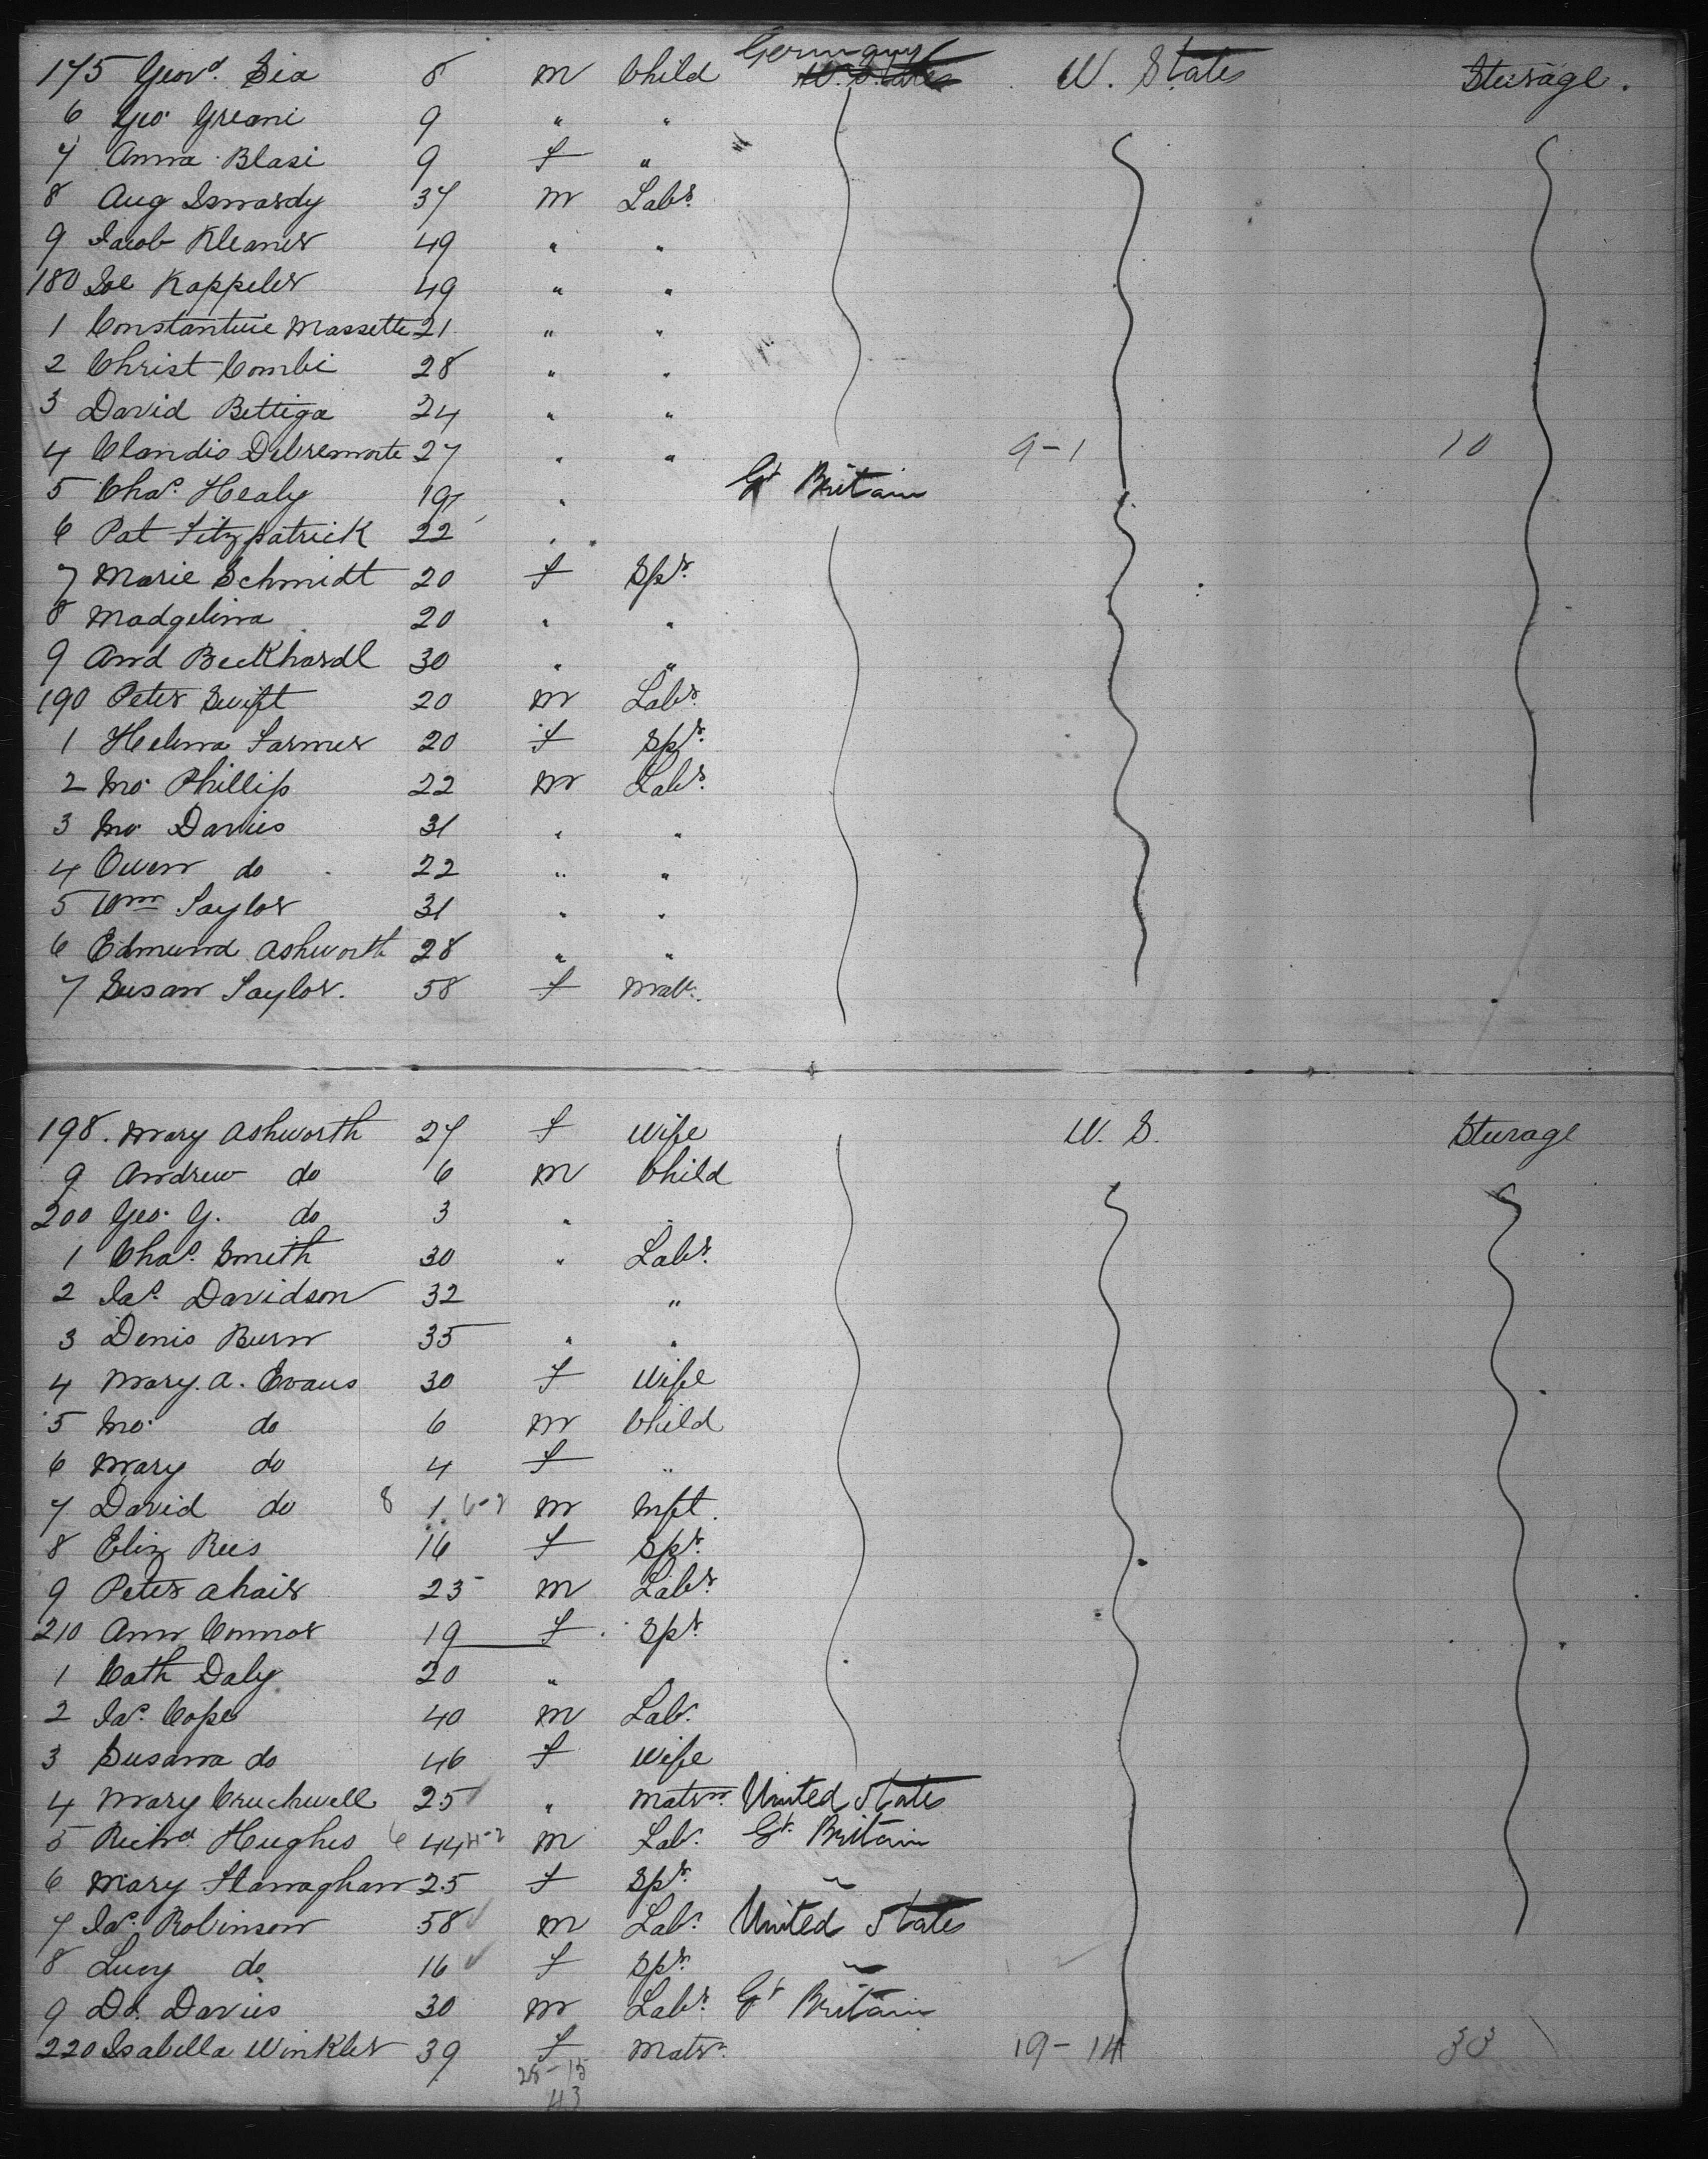 Germany
175 Geovd. Sia 8 m Child U. States U. States Steerage.
6 Geo. Greani 9 " "
7 Anna Blasi 9 f "
8 Aug Isnardy 37 m Labr.
9 Jacob Kleaner 49 " "
180 Joe Kappeler 49 " "
1 Constantine Massette 21 " "
2 Christ Combi 28 " "
3 David Bettiga 24 " "
4 Claudio Delremonte 27 " " 9-1 10
5 Chas. Healy 19 " Gt Britain
6 Pat Fitzpatrick 22 " "
7 Marie Schmidt 20 f Spr.
8 Madgelina 20 " "
9 And Beckhardl 30 " "
190 Peter Swift 20 m Labr.
1 Helena Farmer 20 f Spr.
2 Jno. Phillip 22 m Labr.
3 Jno Davies 31 " "
4 Owen do 22 " "
5 Wm Taylor 31 " "
6 Edmund Ashworth 28 " "
7 Susan Taylor. 58 f Matr.
198. Mary Ashworth 27 f Wife U. S. Steerage
9 Andrew do 6 m Child
200 Geo. G. do 3 " "
1 Chas. Smith 30 " Labr.
2 Jas. Davidson 32 "
3 Denis Burn 35 " "
4 Mary. A. Evans 30 f Wife
5 Jno. do 6 m Child
6 Mary do 4 f "
7 David do 8 1 m Inft.
8 Eliz Rees 16 f Spr.
9 Peter Ahair 23 m Labr.
210 Ann Connor 19 f Spr.
1 Cath Daly 20 "
2 Jas. Cope 40 m Labr.
3 Susana do 46 f Wife
4 Mary Cruchwell 25 " Matrn. United States
5 Richd Hughes 6 44 m Labr. Gt. Britain
6 Mary Flanaghan 25 f Spr. "
7 Jas. Robinson 58 m Labr. United States
8 Lucy do 16 f Spr. "
9 Dd. Davies 30 m Labr. Gt Britain
220 Isabella Winkler 39 f Matr. 19-14 33
28-15
43